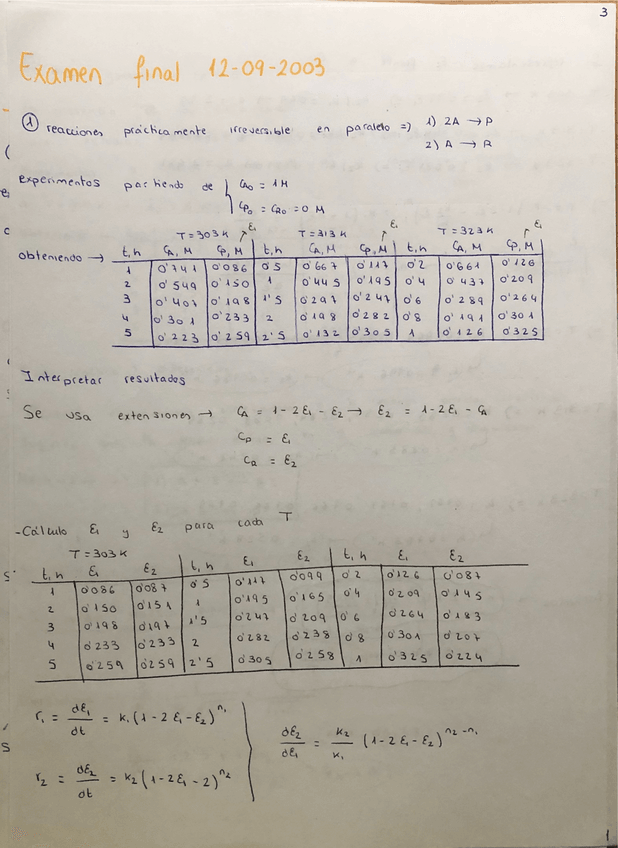 3
Examen final 12-09-2003
① reacciones prácticamente irreversible en paralelo => 1) 2A → P
2) A → R
experimentos partiendo de { CA0 = 1 M
CP0 = CR0 = 0 M
T = 303 K ε1 T = 313 K ε1 T = 323 K ε1
obteniendo → t, h CA, M CP, M t, h CA, M CP, M t, h CA, M CP, M
1 0'741 0'086 0'5 0'667 0'117 0'2 0'661 0'126
2 0'549 0'150 1 0'445 0'195 0'4 0'437 0'209
3 0'407 0'198 1'5 0'297 0'247 0'6 0'289 0'264
4 0'301 0'233 2 0'198 0'282 0'8 0'191 0'301
5 0'223 0'259 2'5 0'132 0'305 1 0'126 0'325
Interpretar resultados
Se usa extensiones → CA = 1-2ε1-ε2 → ε2 = 1-2ε1-CA
CP = ε1
CR = ε2
-Cálculo ε1 y ε2 para cada T
T = 303 K
t, h ε1 ε2 t, h ε1 ε2 t, h ε1 ε2
1 0'086 0'087 0'5 0'117 0'099 0'2 0'126 0'087
2 0'150 0'151 1 0'195 0'165 0'4 0'209 0'145
3 0'198 0'197 1'5 0'247 0'209 0'6 0'264 0'183
4 0'233 0'233 2 0'282 0'238 0'8 0'301 0'207
5 0'259 0'259 2'5 0'305 0'258 1 0'325 0'224
r1 = dε1/dt = k1 (1-2ε1-ε2)^n1
dε2/dε1 = k2/k1 (1-2ε1-ε2)^n2-n1
r2 = dε2/dt = k2 (1-2ε1-2)^n2
1